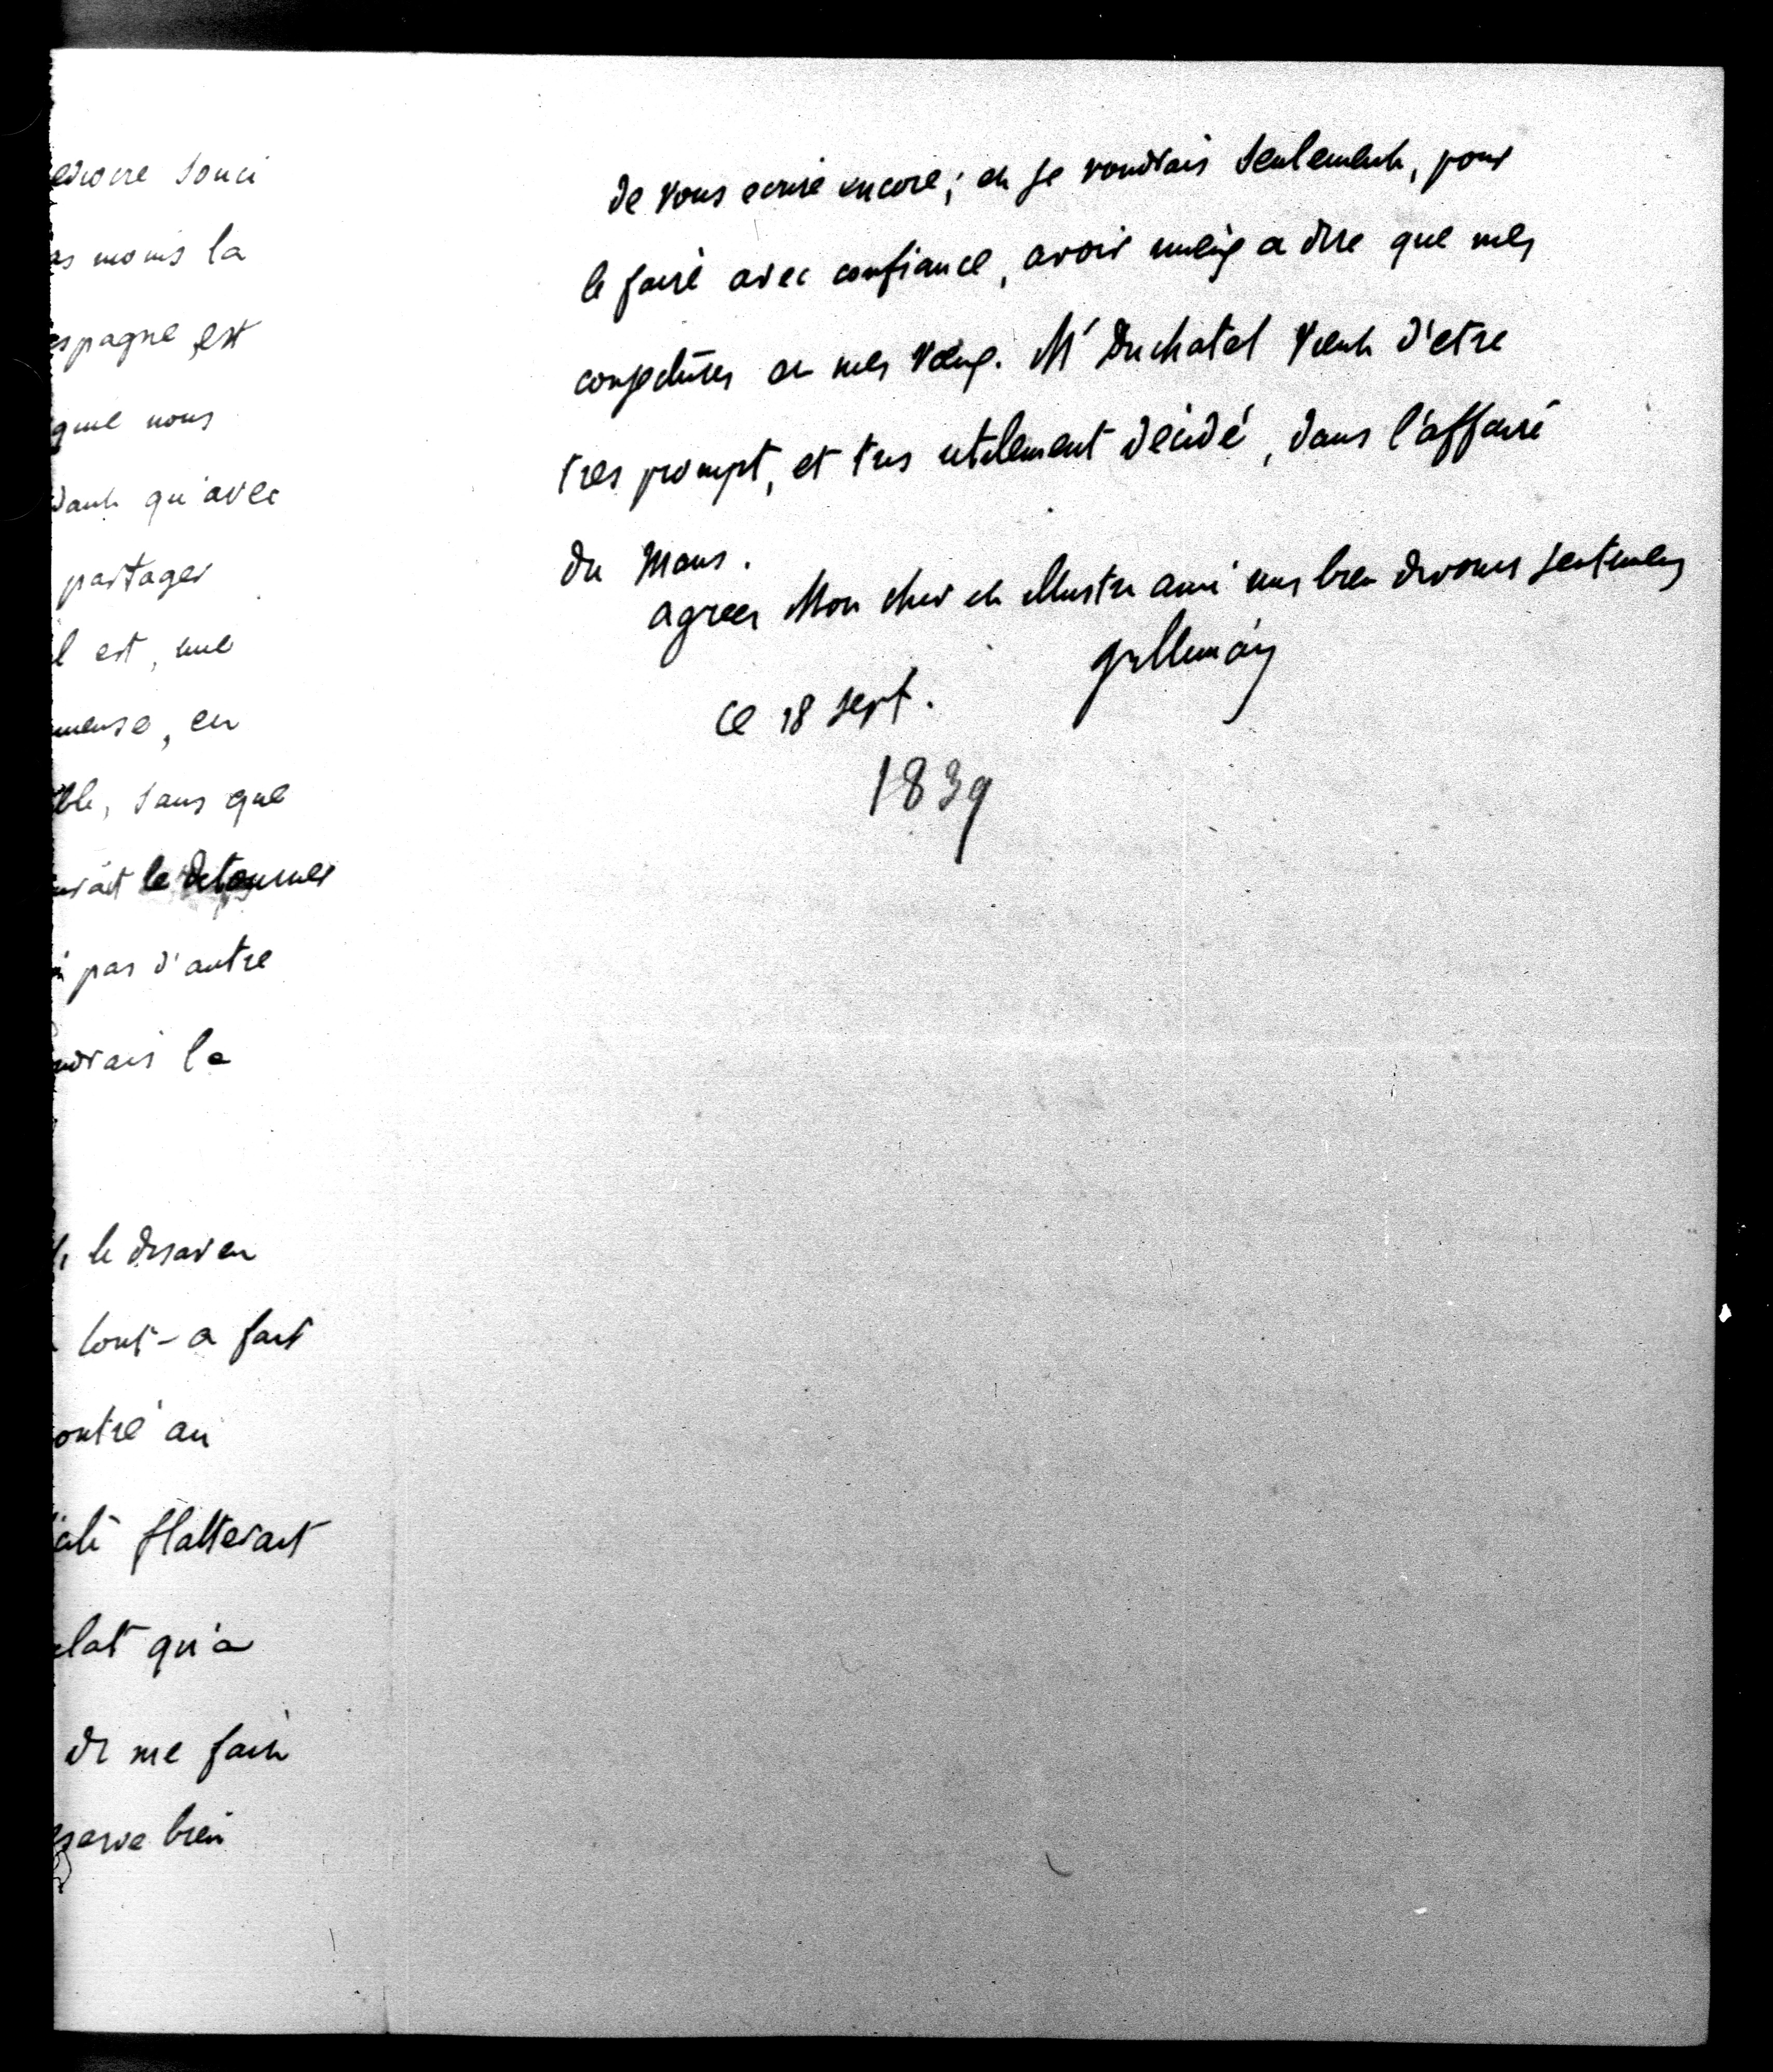 ediocre souci
as moins la
espagne est
que nous
dant qu'avec
partager
l est, une
mense, en
ble, sans que
urait le detourner
i pas d'autre
udrais le
le desaveu
tout-a fait
ontre au
cite flatterait
clat qu'a
de me faire
eserve bien
de vous ecrire encore; et je voudrais seulement, pour
le faire avec confiance, avoir mieux a dire que mes
conjectures et mes voeux. Mr Duchatel vient d'etre
tres prompt, et tres utilement décidé, dans l'affaire
du Mans.
agreez Mon cher et illustre ami mes bien devoues sentimens
Villemain
ce 18 sept.
1839